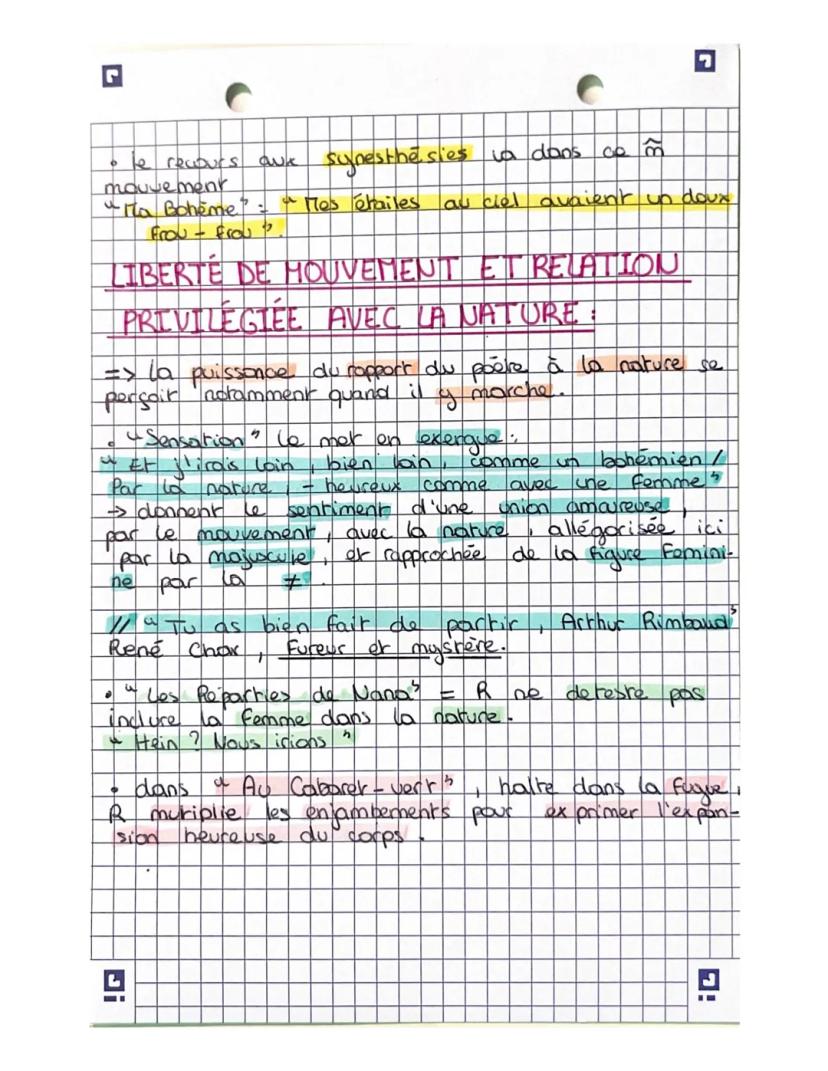 • le recours aux synesthésies va dans ce m̂
mouvement
"Ma Bohême" = "Mes étoiles au ciel avaient un doux
frou-frou".
LIBERTÉ DE MOUVEMENT ET RELATION
PRIVILÉGIÉE AVEC LA NATURE :
=> La puissance du rapport du poète à la nature se
perçoit notamment quand il y marche.
• "Sensation" le met en exergue :
"Et j'irais loin, bien loin, comme un bohémien /
Par la nature, - heureux comme avec une femme"
-> donnent le sentiment d'une union amoureuse,
par le mouvement, avec la nature, allégorisée ici
par la majuscule, et rapprochée de la figure femini-
ne par la ≠.
// "Tu as bien fait de partir, Arthur Rimbaud"
René Char, Fureur et mystère.
• "Les Réparties de Nana" = R ne deteste pas
inclure la femme dans la nature.
"Hein ? Nous irions"
• dans "Au Cabaret-vert", halte dans la fugue,
R mutiplie les enjambements pour exprimer l'expan-
sion heureuse du corps.